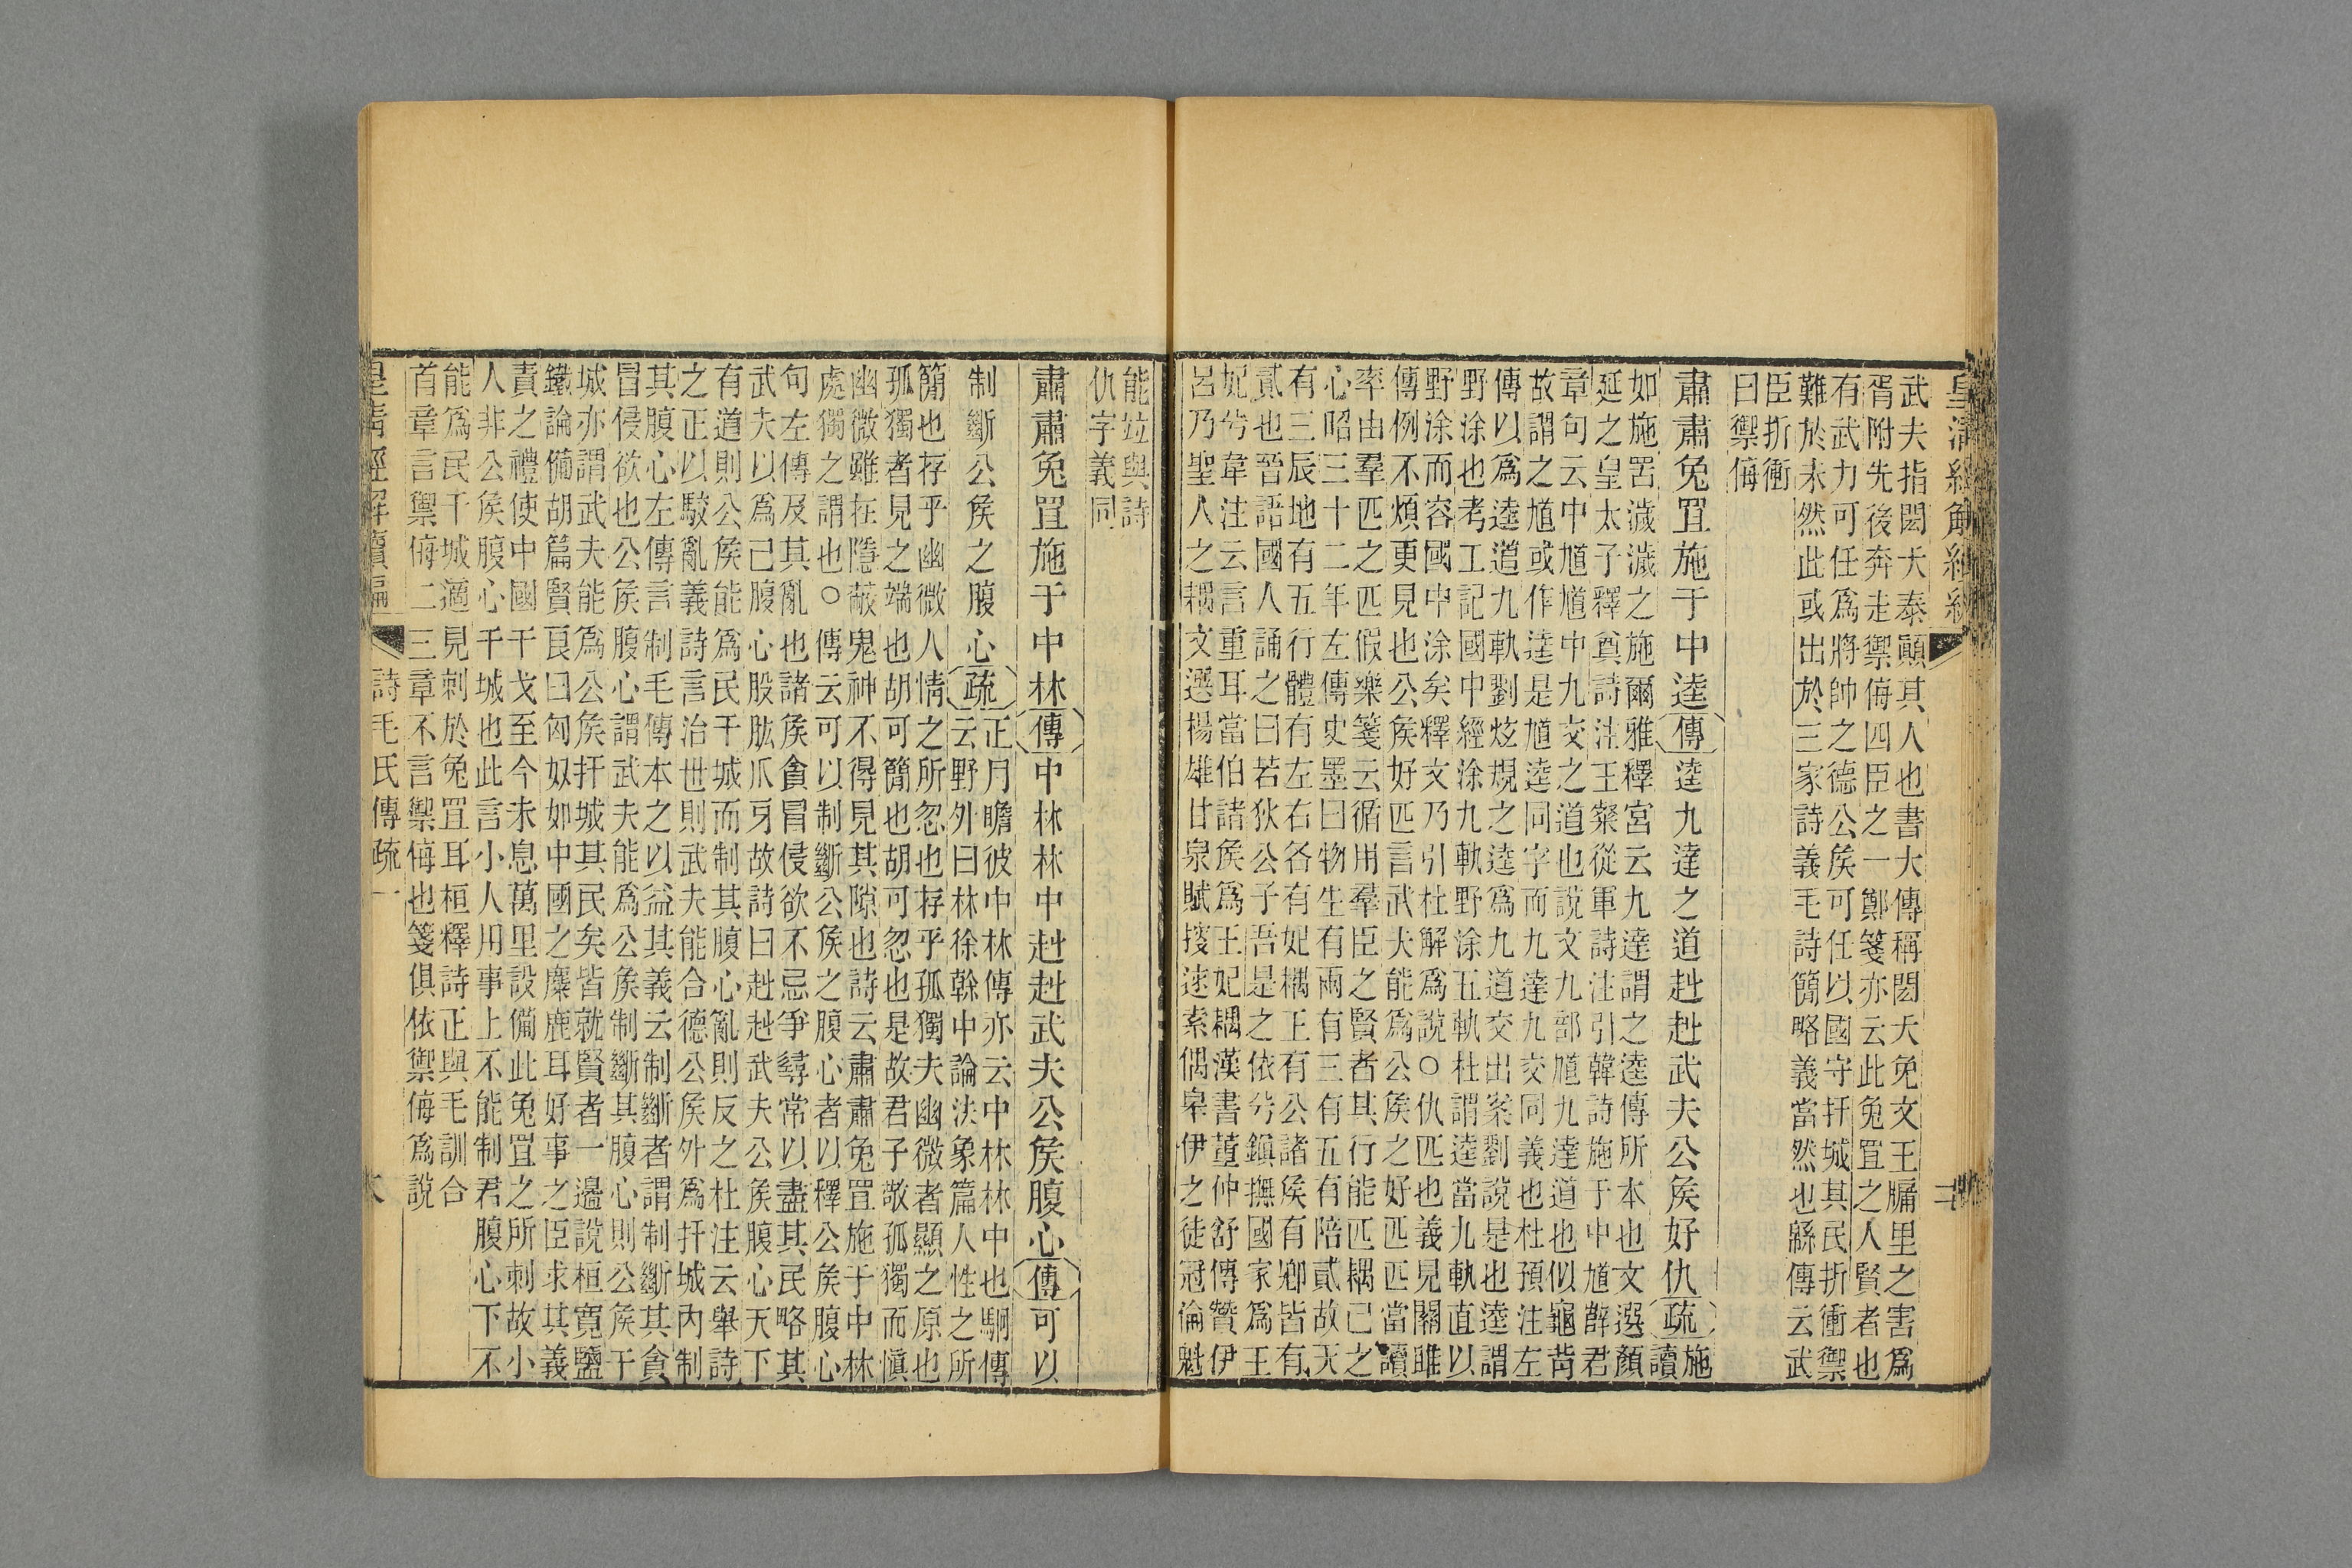 武夫指閎夭泰顚其人也書大傳稱閎夭免文王牖里之害爲
胥附先後奔走禦侮四臣之一鄭箋亦云此兔罝之人賢者也
有武力可任爲將帥之德公矦可任以國守扞城其民折衝禦
難於未然此或出於三家詩義毛詩簡略義當然也緜傳云武
臣折衝
曰禦侮
肅肅兔罝施于中逵傳逵九達之道赳赳武夫公矦好仇疏施
讀
如施罟濊濊之施爾雅釋宮云九達謂之逵傳所本也文選顏
延之皇太子釋奠詩注王粲從軍詩注引韓詩施于中馗薛君
章句云中馗馗中九交之道也說文九部馗九達道也似龜背
故謂之馗或作逵是馗逵同字而九達九交同義也杜預注左
傳以爲逵道九軌劉炫規之逵爲九道交出案劉說是也逵謂
野涂也考工記國中經涂九軌野涂五軌杜謂逵當九軌直以
野涂而容國中涂矣釋文乃引杜解爲說○仇匹也義見關雎
傳例不煩更見也公矦好匹言武夫能爲公矦之好匹匹當讀
率由羣匹之匹假樂箋云循用羣臣之賢者其行能匹耦己之
心昭三十二年左傳史墨曰物生有兩有三有五有陪貳故天
有三辰地有五行體有左右各有妃耦王有公諸矦有卿皆有
貳也晉語國人誦之曰若狄公子吾是之依兮鎮撫國家爲王
妃兮韋注云言重耳當伯諸矦爲王妃耦漢書董仲舒傳贊伊
呂乃聖人之耦文選揚雄甘泉賦搜逑索偶皋伊之徒冠倫魁
能竝與詩
仇字義同
肅肅兔罝施于中林傳中林林中赳赳武夫公矦腹心傳可以
制斷公矦之腹心疏正月瞻彼中林傳亦云中林林中也駉傳
云野外曰林徐幹中論法象篇人性之所
簡也存乎幽微人情之所忽也存乎孤獨夫幽微者顯之原也
孤獨者見之端也胡可簡也胡可忽也是故君子敬孤獨而愼
幽微雖在隱蔽鬼神不得見其隙也詩云肅肅兔罝施于中林
處獨之謂也○傳云可以制斷公矦之腹心者以釋公矦腹心
句左傳及其亂也諸矦貪冒侵欲不忌爭尋常以盡其民略其
武夫以爲己腹心股肱爪牙故詩曰赳赳武夫公矦腹心天下
有道則公矦能爲民干城而制其腹心亂則反之杜注云舉詩
之正以駮亂義詩言治世則武夫能合德公矦外爲扞城內制
其腹心左傳言制毛傳本之以益其義云制斷者謂制斷其貪
冒侵欲也公矦腹心謂武夫能爲公矦制斷其腹心則公矦干
城亦謂武夫能爲公矦扞城其民矣皆就賢者一邊說桓寬鹽
鐵論備胡篇賢良曰匈奴如中國之麋鹿耳好事之臣求其義
責之禮使中國干戈至今未息萬里設備此兔罝之所刺故小
人非公矦腹心干城也此言小人用事上不能制君腹心下不
能爲民干城適見刺於兔罝耳桓釋詩正與毛訓合
首章言禦侮二三章不言禦侮也箋俱依禦侮爲說
皇清經解續編 詩毛氏傳疏一